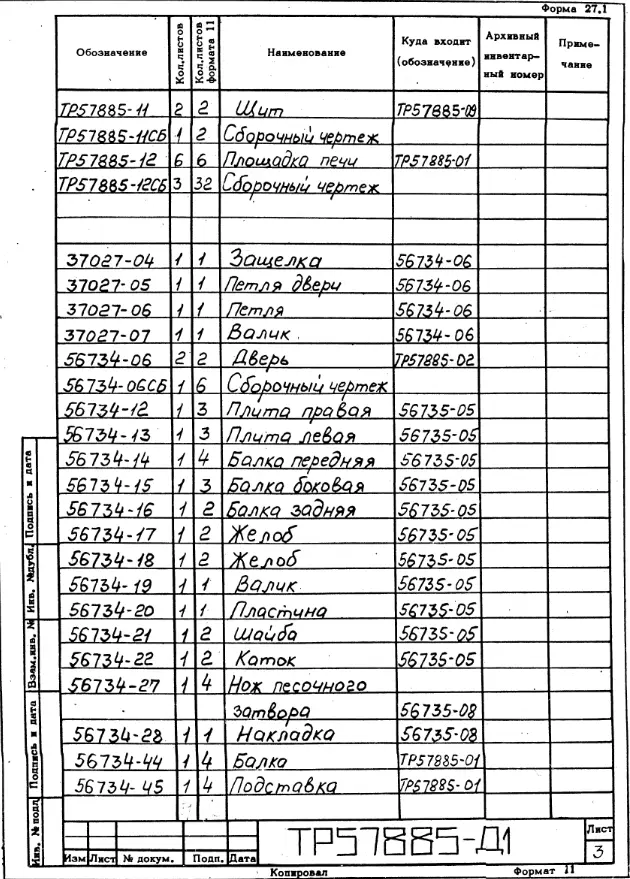 Форма 27.1
Обозначение Кол.листов Кол.листов формата 11 Наименование Куда входит (обозначение) Архивный инвентарный номер Примечание
ТР57885-11 2 2 Щит ТР57885-09
ТР57885-11СБ 1 2 Сборочный чертеж
ТР57885-12 6 6 Площадка печи ТР57885-01
ТР57885-12СБ 3 32 Сборочный чертеж
37027-04 1 1 Защелка 56734-06
37027-05 1 1 Петля двери 56734-06
37027-06 1 1 Петля 56734-06
37027-07 1 1 Валик 56734-06
56734-06 2 2 Дверь ТР57885-02
56734-06СБ 1 6 Сборочный чертеж
56734-12 1 3 Плита правая 56735-05
56734-13 1 3 Плита левая 56735-05
56734-14 1 4 Балка передняя 56735-05
56734-15 1 3 Балка боковая 56735-05
56734-16 1 2 Балка задняя 56735-05
56734-17 1 2 Желоб 56735-05
56734-18 1 2 Желоб 56735-05
56734-19 1 1 Валик 56735-05
56734-20 1 1 Пластина 56735-05
56734-21 1 2 Шайба 56735-05
56734-22 1 2 Каток 56735-05
56734-27 1 4 Нож песочного
затвора 56735-08
56734-28 1 1 Накладка 56735-08
56734-44 1 4 Балка ТР57885-01
56734-45 1 4 Подставка ТР57885-01
Подпись и дата
Инв. №дубл.
Взам.инв. №
Подпись и дата
Инв. №подл
Изм Лист № докум. Подп. Дата
ТР57885-Д1
Лист
3
Копировал Формат 11